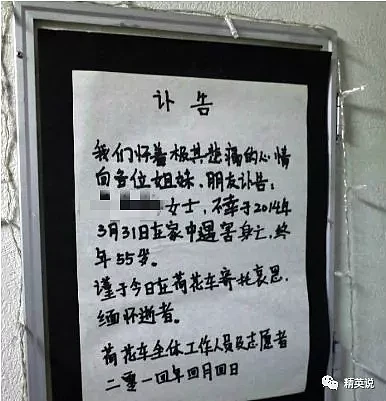 讣告
我们怀着极其悲痛的心情
向各位姐妹、朋友讣告:
女士,不幸于2014年
3月31日在家中遇害身亡,终
年55岁。
谨于今日在荷花车寄托哀思,
缅怀逝者。
荷花车全体工作人员及志愿者
二零一四年四月四日
精英说